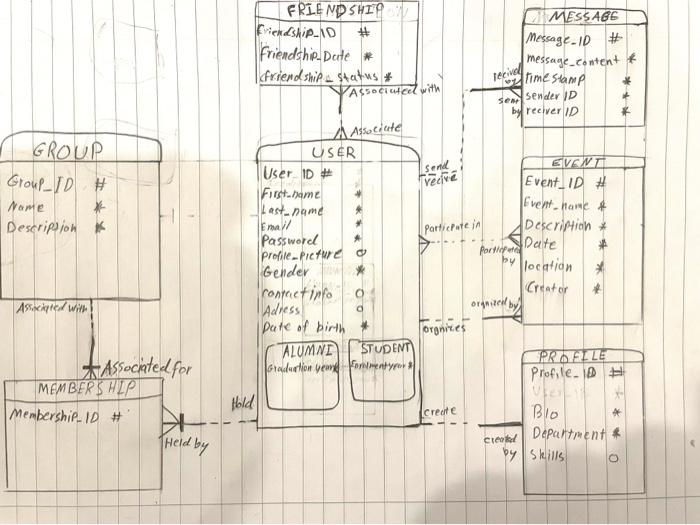 FRIENDSHIP
Friendship_ID #
Friendship_Date *
friendship_status *
Associated with
Associate
MESSAGE
Message_ID #
message_content *
time stamp *
sender ID *
reciver ID *
recived by
sent by
GROUP
Group_ID #
Name *
Description *
Associated with
USER
User_ID #
First_name *
Last_name *
Email *
Password *
Profile_Picture o
Gender *
contact info o
Adress o
Date of birth *
ALUMNI
Graduction year *
STUDENT
Enrolment year *
send
recive
Participate in
Participated by
orgnizes
organized by
EVENT
Event_ID #
Event_name *
Description *
Date *
location *
Creator *
Associated for
MEMBERSHIP
Membership_ID #
Held by
Hold
create
created by
PROFILE
Profile_ID #
BIo *
Department *
skills o